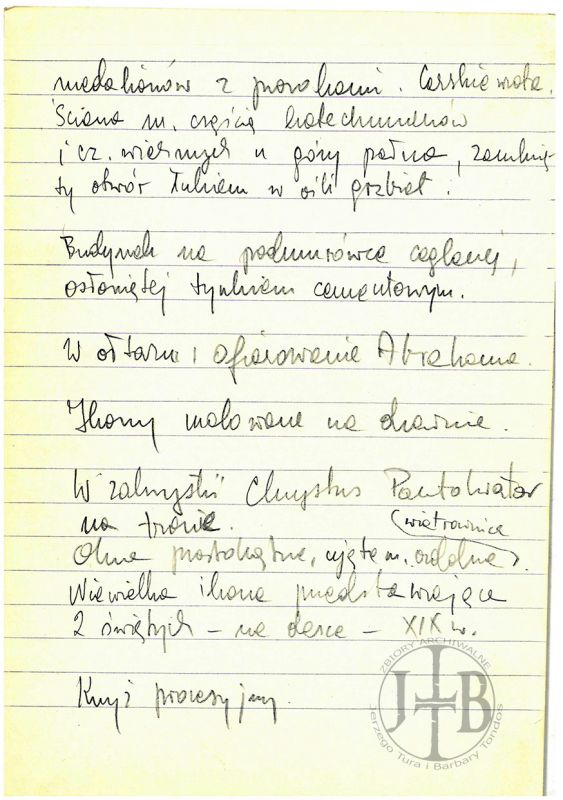 medalionów z prorokami. Carskie wrota.
Ściana m. częścią katechumenów
i cz. wiernych u góry pełna, zamknię-
ty otwór łukiem w ośli grzbiet.
Budynek na podmurówce ceglanej,
osłoniętej tynkiem cementowym.
W ołtarzu: ofiarowanie Abrahama.
Ikony malowane na drewnie.
W zakrystii Chrystus Pantokrator
na tronie.
(wiatrownice
Okna prostokątne, ujęte m. ozdobne).
Niewielka ikona przedstawiająca
2 świętych – na desce – XIX w.
Krzyż procesyjny
ZBIORY ARCHIWALNE
JTB
Jerzego Tura i Barbary Tondos